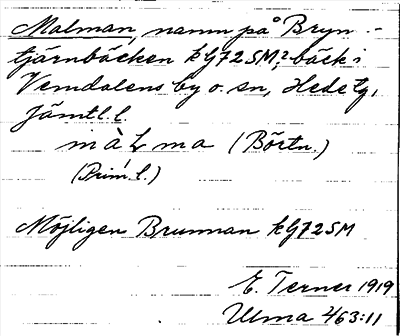 Malman, namn på Bryn-
tjärnbäcken kG72SM,² bäck i
Vemdalens by o. sn, Hede tg,
Jämtl. l.
màLma (Börtn.)
(Prim. l.)
Möjligen Brunnan kG72SM
E. Terner 1919
Ulma 463:11